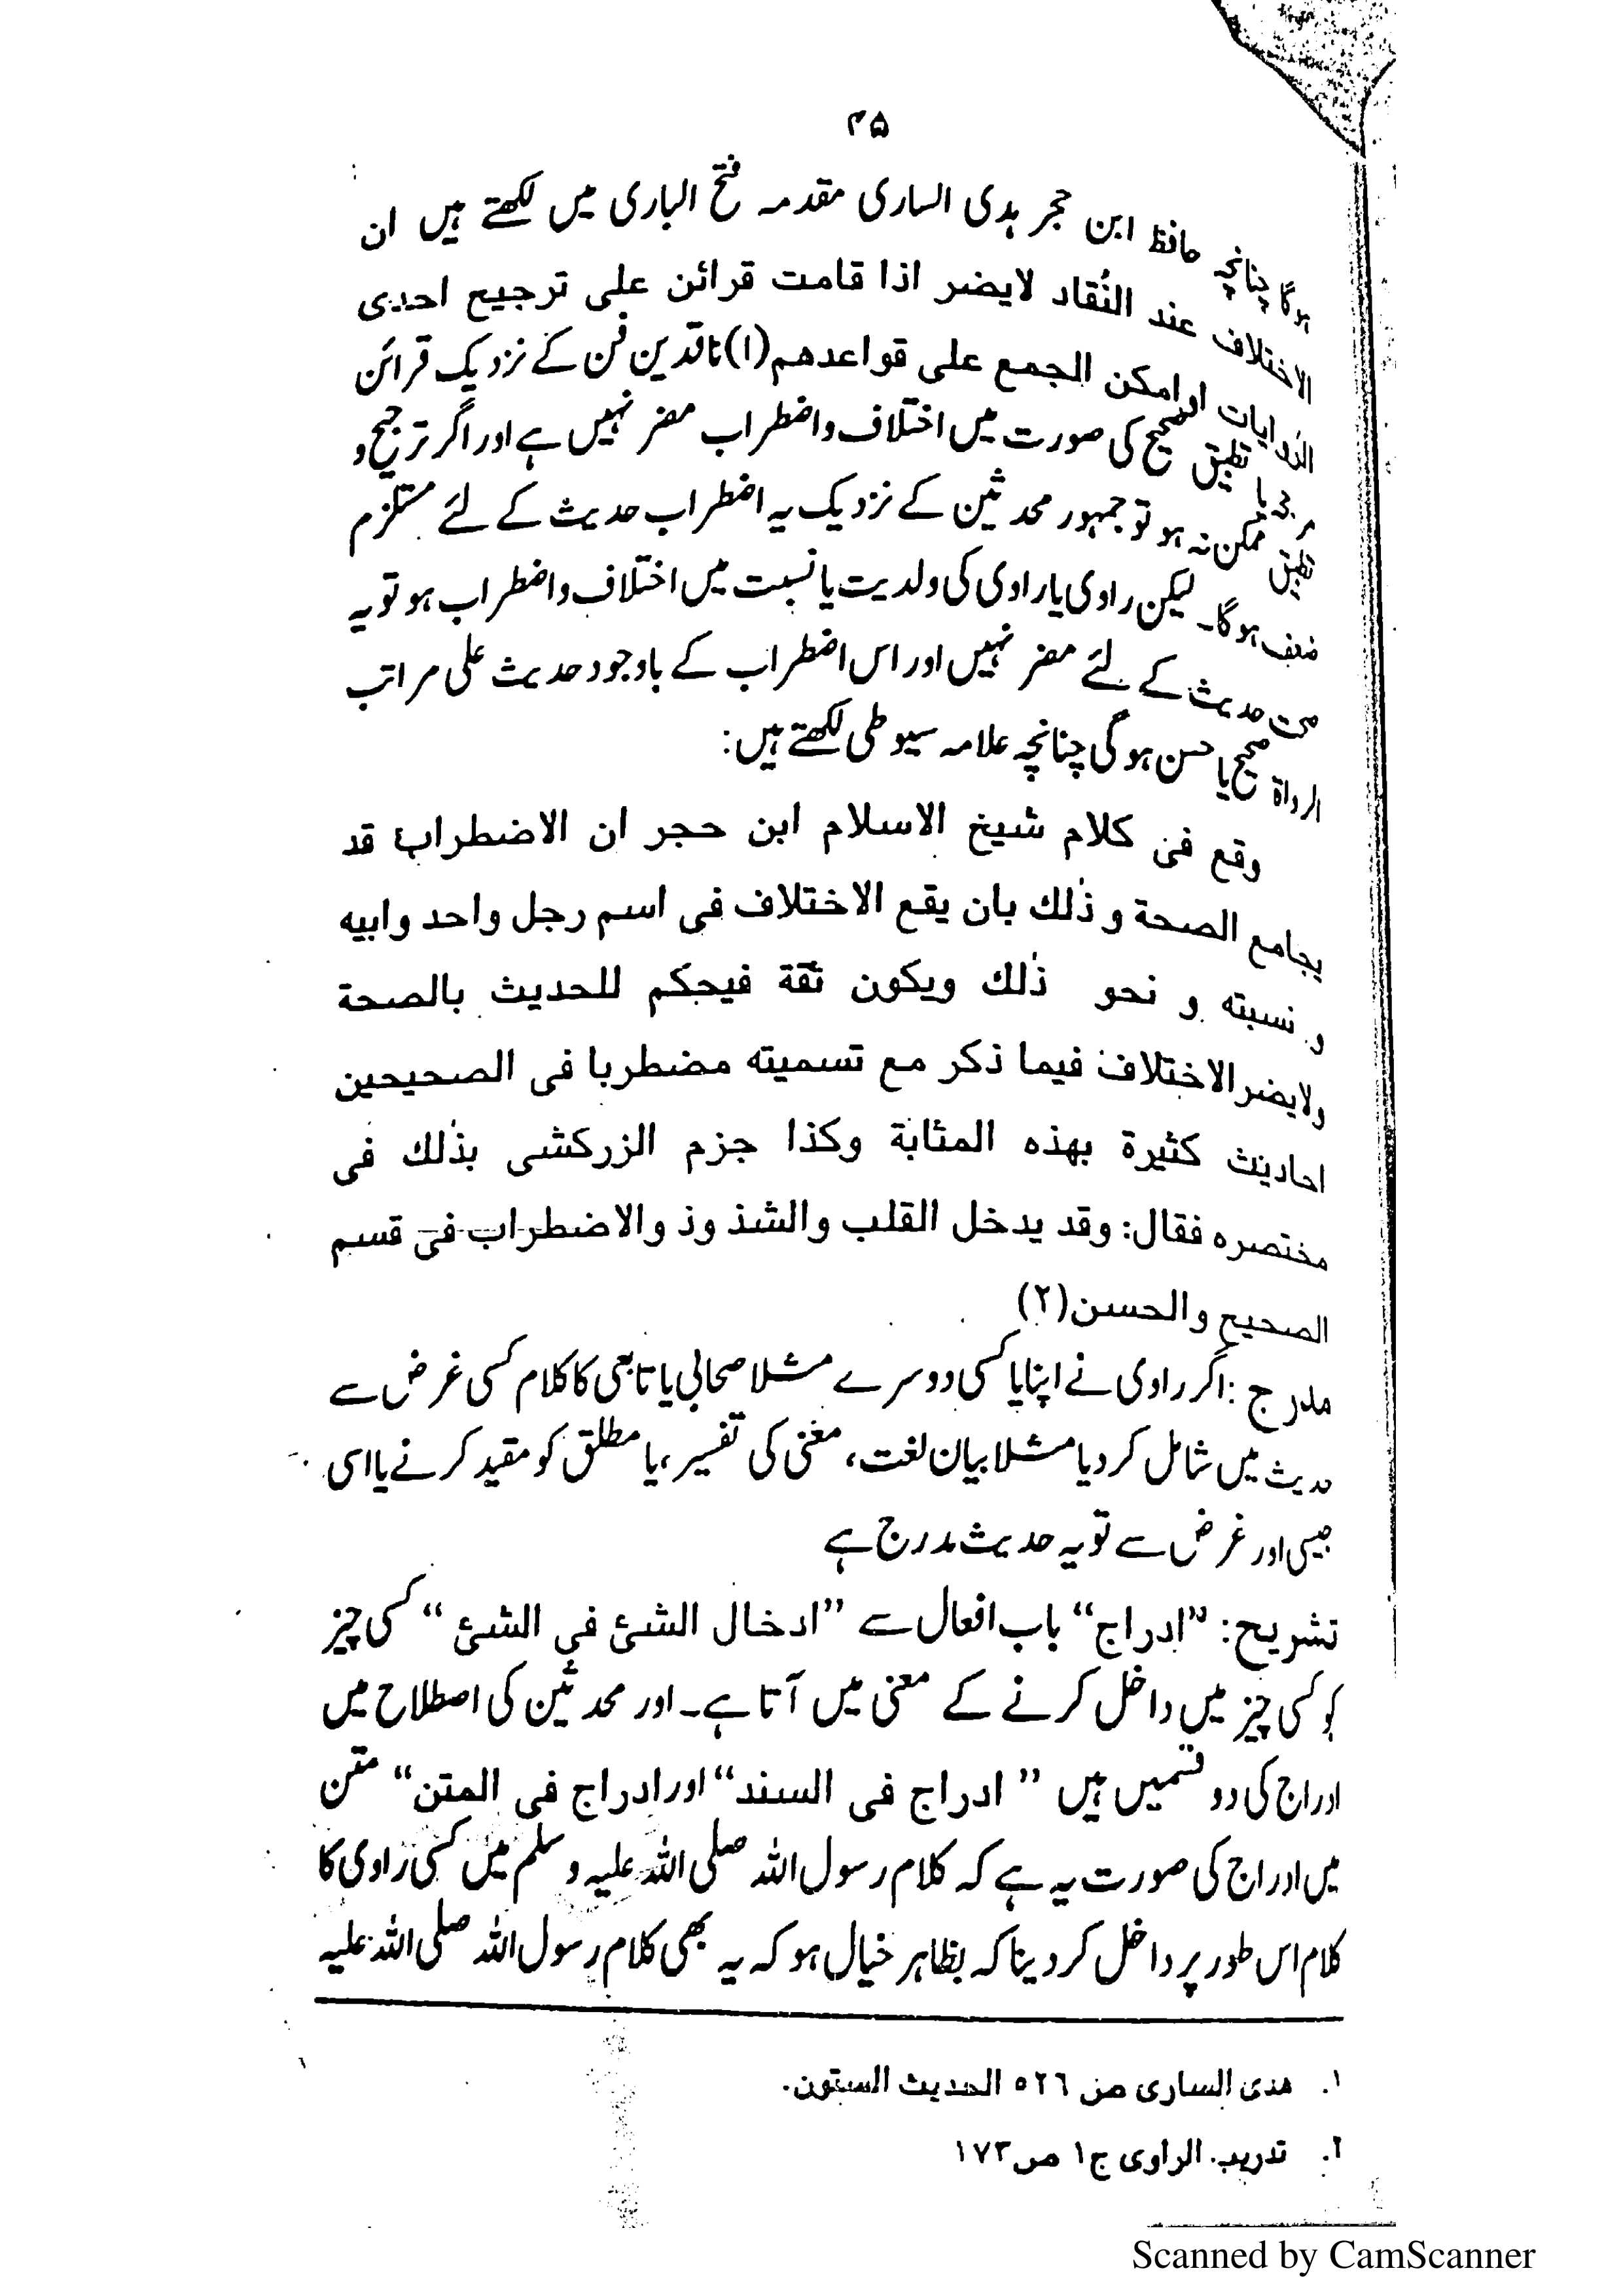 ۴۵
ہوگا چنانچہ حافظ ابن حجر ہدی الساری مقدمہ فتح الباری میں لکھتے ہیں ان
الاختلاف عند النُقاد لایضر اذا قامت قرائن علی ترجیح احدی
الروایات اوامکن الجمع علی قواعدھم(۱)ناقدین فن کے نزدیک قرائن
مرجحہ یا تطبیق صحیح کی صورت میں اختلاف واضطراب مضر نہیں ہے اور اگر ترجیح و
تطبیق ممکن نہ ہو تو جمہور محدثین کے نزدیک یہ اضطراب حدیث کے لئے مستلزم
ضعف ہوگا۔ لیکن راوی یا راوی کی ولدیت یا نسبت میں اختلاف واضطراب ہو تو یہ
صحت حدیث کے لئے مضر نہیں اور اس اضطراب کے باوجود حدیث علی مراتب
الرواۃ صحیح یا حسن ہوگی چنانچہ علامہ سیوطی لکھتے ہیں:
وقع فی کلام شیخ الاسلام ابن حجر ان الاضطراب قد
یجامع الصحة و ذٰلك بان یقع الاختلاف فی اسم رجل واحد وابیه
و نسبته و نحو ذٰلك ویکون ثقة فیحکم للحدیث بالصحة
ولایضر الاختلاف فیما ذکر مع تسمیته مضطربا فی الصحیحین
احادیث کثیرة بهذه المثابة وکذا جزم الزرکشی بذٰلك فی
مختصره فقال: وقد یدخل القلب والشذوذ والاضطراب فی قسم
الصحیح والحسن(۲)
مدرج :اگر راوی نے اپنا یا کسی دوسرے مثلا صحابی یا تابعی کا کلام کسی غرض سے
حدیث میں شامل کردیا مثلا بیان لغت، معنی کی تفسیر، یا مطلق کو مقید کرنے یا اسی
جیسی اور غرض سے تو یہ حدیث مدرج ہے
تشریح: ”ادراج“ باب افعال سے ”ادخال الشئ فی الشئ“ کسی چیز
کو کسی چیز میں داخل کرنے کے معنی میں آتا ہے۔ اور محدثین کی اصطلاح میں
ادراج کی دو قسمیں ہیں ” ادراج فی السند“ اور ادراج فی المتن“ متن
میں ادراج کی صورت یہ ہے کہ کلام رسول اللہ صلی اللہ علیہ وسلم میں کسی راوی کا
کلام اس طور پر داخل کردینا کہ بظاہر خیال ہو کہ یہ بھی کلام رسول اللہ صلی اللہ علیہ
۱. ھدی الساری ص ۵۲٦ الحدیث الستون.
۲. تدریب الراوی ج۱ ص۱۷۳
Scanned by CamScanner